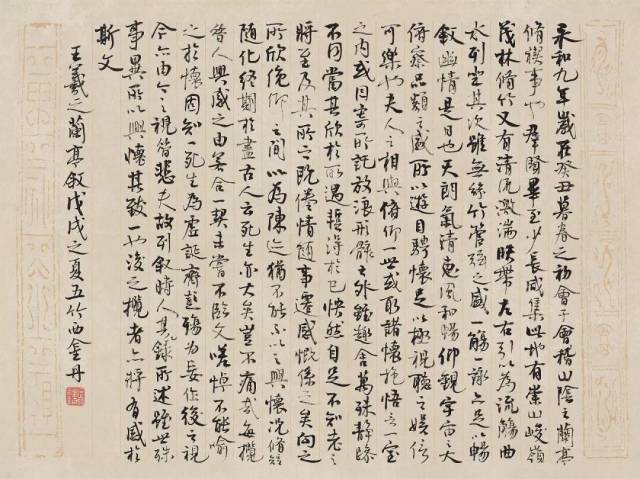 永和九年歲在癸丑暮春之初會于會稽山陰之蘭亭
脩禊事也羣賢畢至少長咸集此地有崇山峻嶺
茂林脩竹又有清流激湍暎帶左右引以為流觴曲
水列坐其次雖無絲竹管弦之盛一觴一詠亦足以暢
敘幽情是日也天朗氣清惠風和暢仰觀宇宙之大
俯察品類之盛所以遊目騁懷足以極視聽之娛信
可樂也夫人之相與俯仰一世或取諸懷抱悟言一室
之內或因寄所託放浪形骸之外雖趣舍萬殊靜躁
不同當其欣於所遇暫得於己快然自足不知老之
將至及其所之既倦情隨事遷感慨係之矣向之
所欣俛仰之間以為陳迹猶不能不以之興懷況脩短
隨化終期於盡古人云死生亦大矣豈不痛哉每攬
昔人興感之由若合一契未嘗不臨文嗟悼不能喻
之於懷固知一死生為虛誕齊彭殤為妄作後之視
今亦由今之視昔悲夫故列敘時人其錄所述雖世殊
事異所以興懷其致一也後之攬者亦將有感於
斯文
王羲之蘭亭敘戊戌之夏五竹西金丹